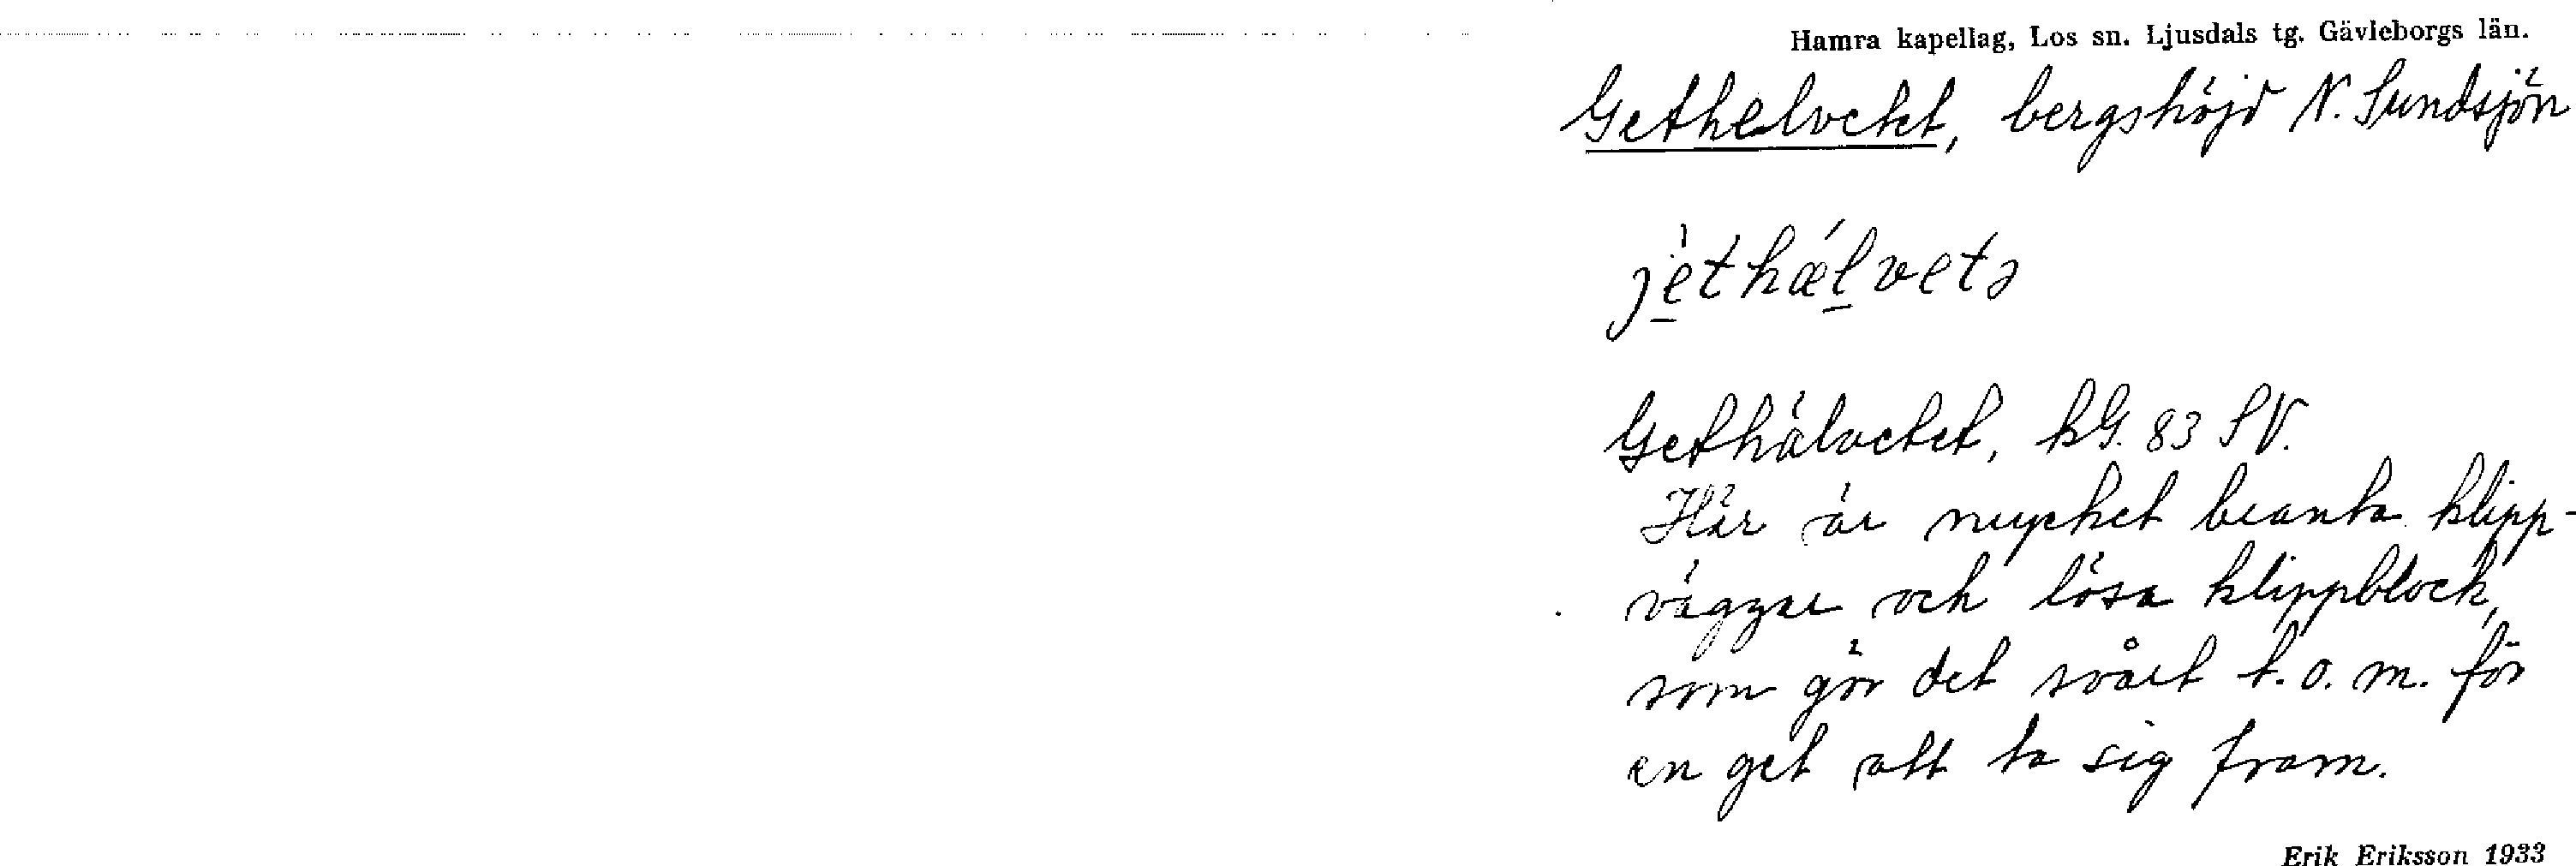 Hamra kapellag, Los sn. Ljusdals tg. Gävleborgs län.
Gethelvetet, bergshöjd N. Sundsjön
jèthǽlvetə
Gethälvetet, kG. 83 SV.
Här är mycket branta klipp-
väggar och lösa klippblock,
som gör det svårt t.o.m. för
en get att ta sig fram.
Erik Eriksson 1933